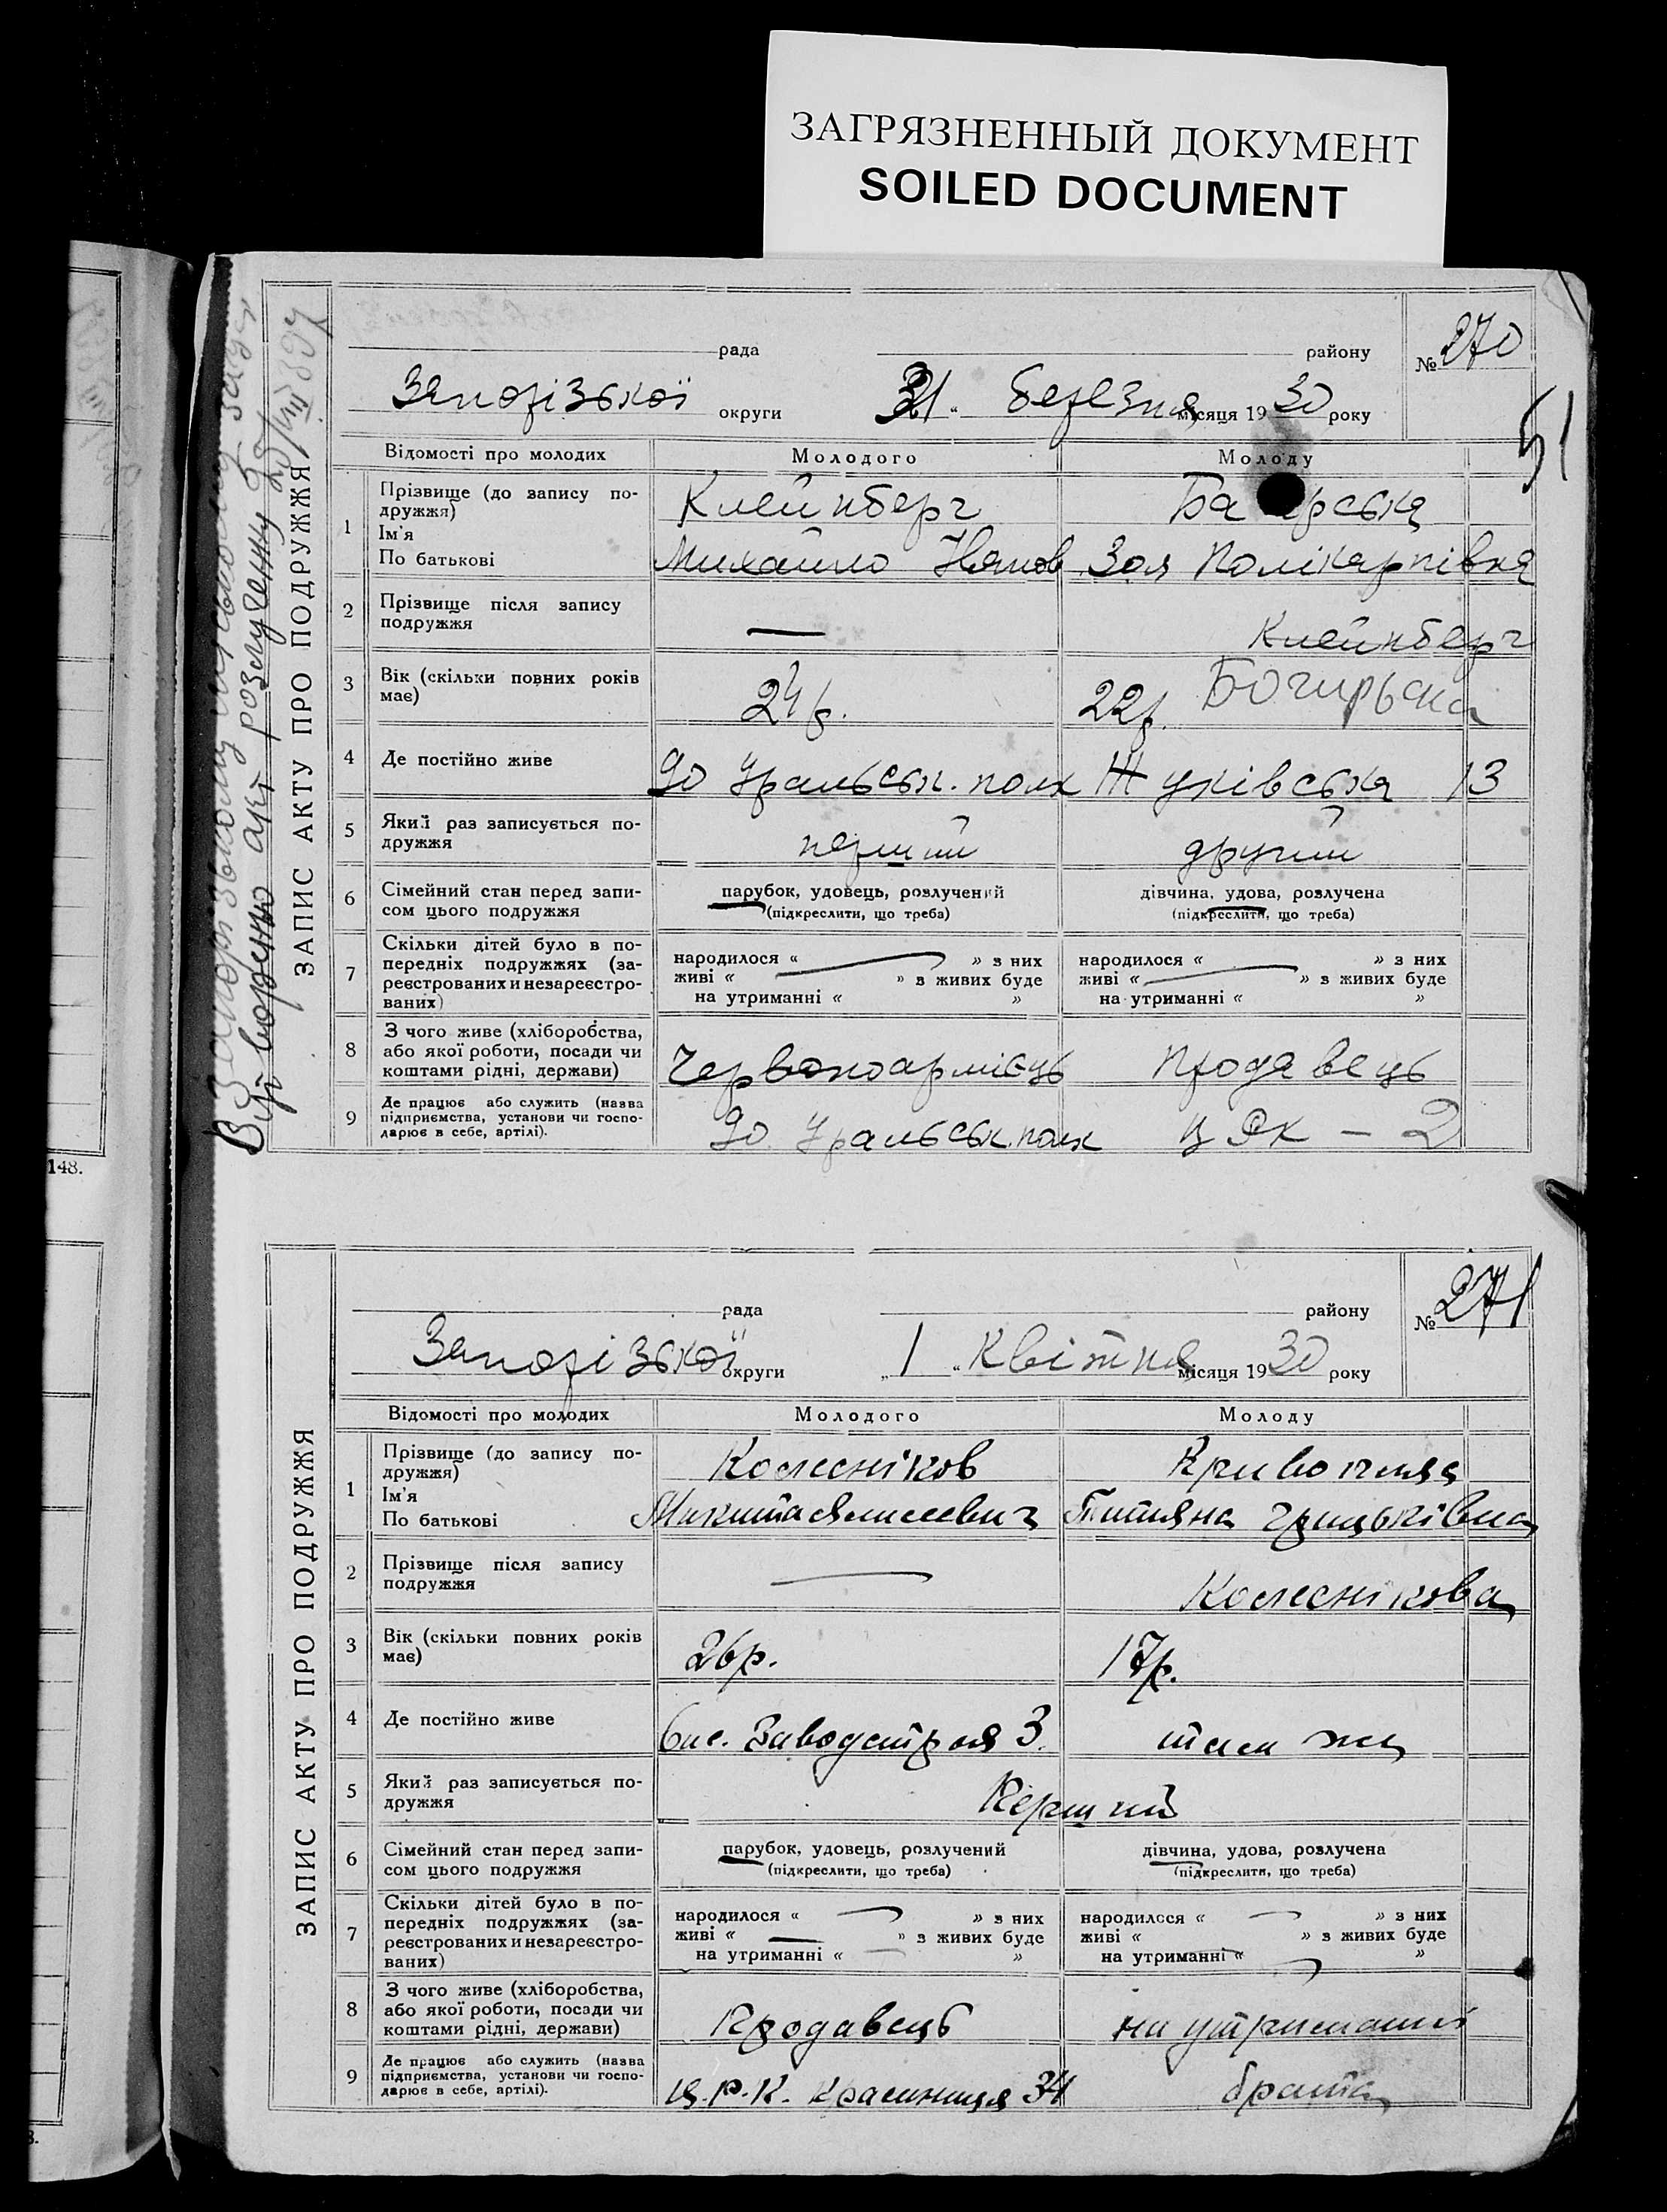 ЗАГРЯЗНЕННЫЙ ДОКУМЕНТ
SOILED DOCUMENT
рада району № 270
Запорізької округи 31 „ березня місяця 1930 року
51
ЗАПИС АКТУ ПРО ПОДРУЖЖЯ
Відомості про молодих Молодого Молоду
1 Прізвище (до запису по-
дружжя) Клейнберг Ба рська
Ім'я
По батькові Михайло Зоя Полікарпівна
2 Прізвище після запису
подружжя — Клейнберг
3 Вік (скільки повних років
має) 24 р. 22 р. Богирьска
4 Де постійно живе 90 Уральськ. полк Жуківська 13
5 Який раз записується по-
дружжя перший другий
6 Сімейний стан перед запи-
сом цього подружжя
парубок, удовець, розлучений
(підкреслити, що треба)
дівчина, удова, розлучена
(підкреслити, що треба)
7 Скільки дітей було в по-
передніх подружжях (за-
реєстрованих и незареєстро-
ваних)
народилося « — » з них
живі « » з живих буде
на утриманні « »
народилося « » з них
живі « — » з живих буде
на утриманні « »
8 З чого живе (хліборобства,
або якої роботи, посади чи
коштами рідні, держави) Червоноармієць Продавець
9 Де працює або служить (назва
підприємства, установи чи госпо-
дарює в себе, артілі). 90 Уральськ. полк — 2
148.
рада району № 271
Запорізької округи „ 1 „ Квітня місяця 1930 року
ЗАПИС АКТУ ПРО ПОДРУЖЖЯ
Відомості про молодих Молодого Молоду
1 Прізвище (до запису по-
дружжя) Колесніков
Ім'я
По батькові Микита Титяна Грицьківна
2 Прізвище після запису
подружжя — Колеснікова
3 Вік (скільки повних років
має) 26 р. 17 р.
4 Де постійно живе Заводстроя 3. там же
5 Який раз записується по-
дружжя Перший
6 Сімейний стан перед запи-
сом цього подружжя
парубок, удовець, розлучений
(підкреслити, що треба)
дівчина, удова, розлучена
(підкреслити, що треба)
7 Скільки дітей було в по-
передніх подружжях (за-
реєстрованих и незареєстро-
ваних)
народилося « — » з них
живі « — » з живих буде
на утриманні « — »
народилося « — » з них
живі « » з живих буде
на утриманні « — »
8 З чого живе (хліборобства,
або якої роботи, посади чи
коштами рідні, держави) Продавець на утриманні
9 Де працює або служить (назва
підприємства, установи чи госпо-
дарює в себе, артілі). Ц.Р.К. Крамниця 34 брата